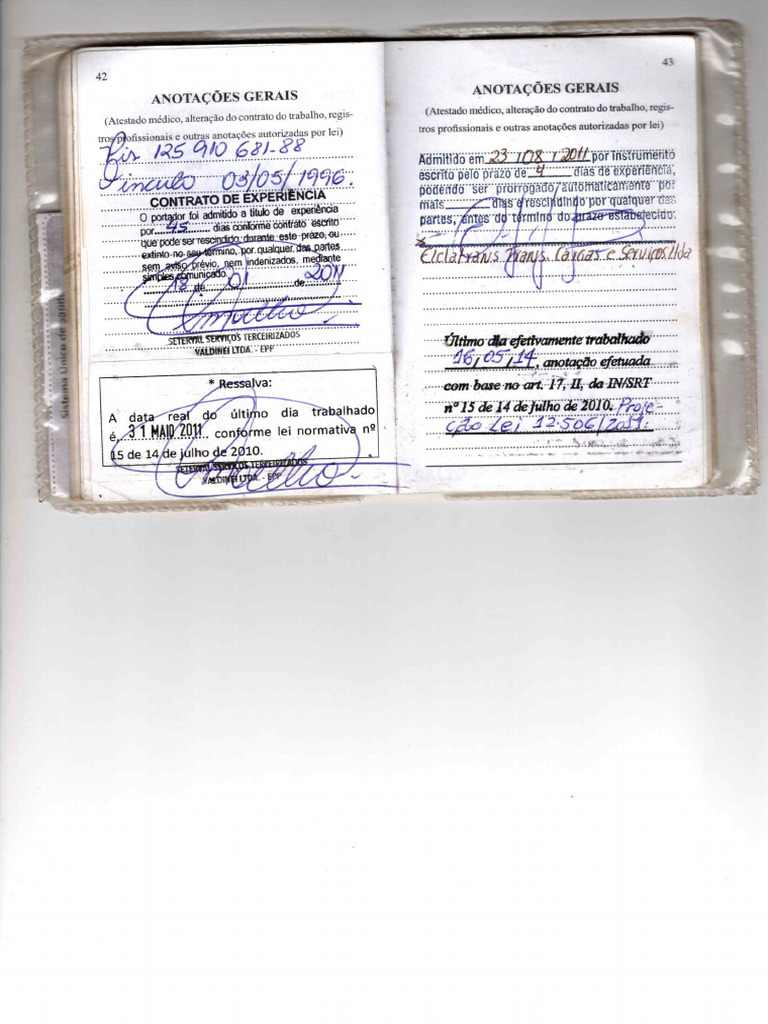 42
ANOTAÇÕES GERAIS
(Atestado médico, alteração do contrato do trabalho, regis-
tros profissionais e outras anotações autorizadas por lei)
Pis 125 910 681-88
Vinculo 03/05/1996.
CONTRATO DE EXPERIÊNCIA
O portador foi admitido a título de experiência
por 45 dias conforme contrato escrito
que pode ser rescindido, durante este prazo, ou
extinto no seu término, por qualquer das partes
sem aviso prévio, nem indenizados, mediante
simples comunicado
18 de 01 de 2011
SETERVAL SERVIÇOS TERCEIRIZADOS
VALDINEI LTDA. - EPP
* Ressalva:
A data real do último dia trabalhado
é 31 MAIO 2011 conforme lei normativa nº
15 de 14 de julho de 2010.
SETERVAL SERVIÇOS TERCEIRIZADOS
VALDINEI LTDA. - EPP
43
ANOTAÇÕES GERAIS
(Atestado médico, alteração do contrato do trabalho, regis-
tros profissionais e outras anotações autorizadas por lei)
Admitido em 23/08/2011 por instrumento
escrito pelo prazo de dias de experiência,
podendo ser prorrogado automaticamente por
mais dias e rescindindo por qualquer das
partes, antes do término do prazo estabelecido.
Trans. Cargas e Serviços Ltda
Último dia efetivamente trabalhado
16/05/14, anotação efetuada
com base no art. 17, II, da IN/SRT
nº 15 de 14 de julho de 2010. Proje-
ção Lei 12.506/2011.